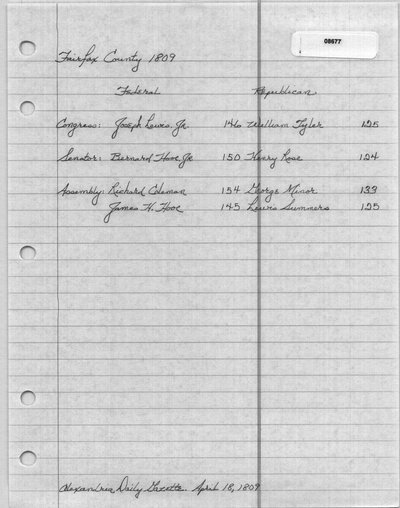 08677
Fairfax County 1809
Federal Republican
Congress: Joseph Lewis, Jr. 146 William Tyler 125
Senator: Bernard Hooe Jr 150 Henry Rose 124
Assembly: Richard Coleman 154 George Minor 133
James H. Hooe 145 Lewis Summers 125
Alexandria Daily Gazette. April 18, 1809